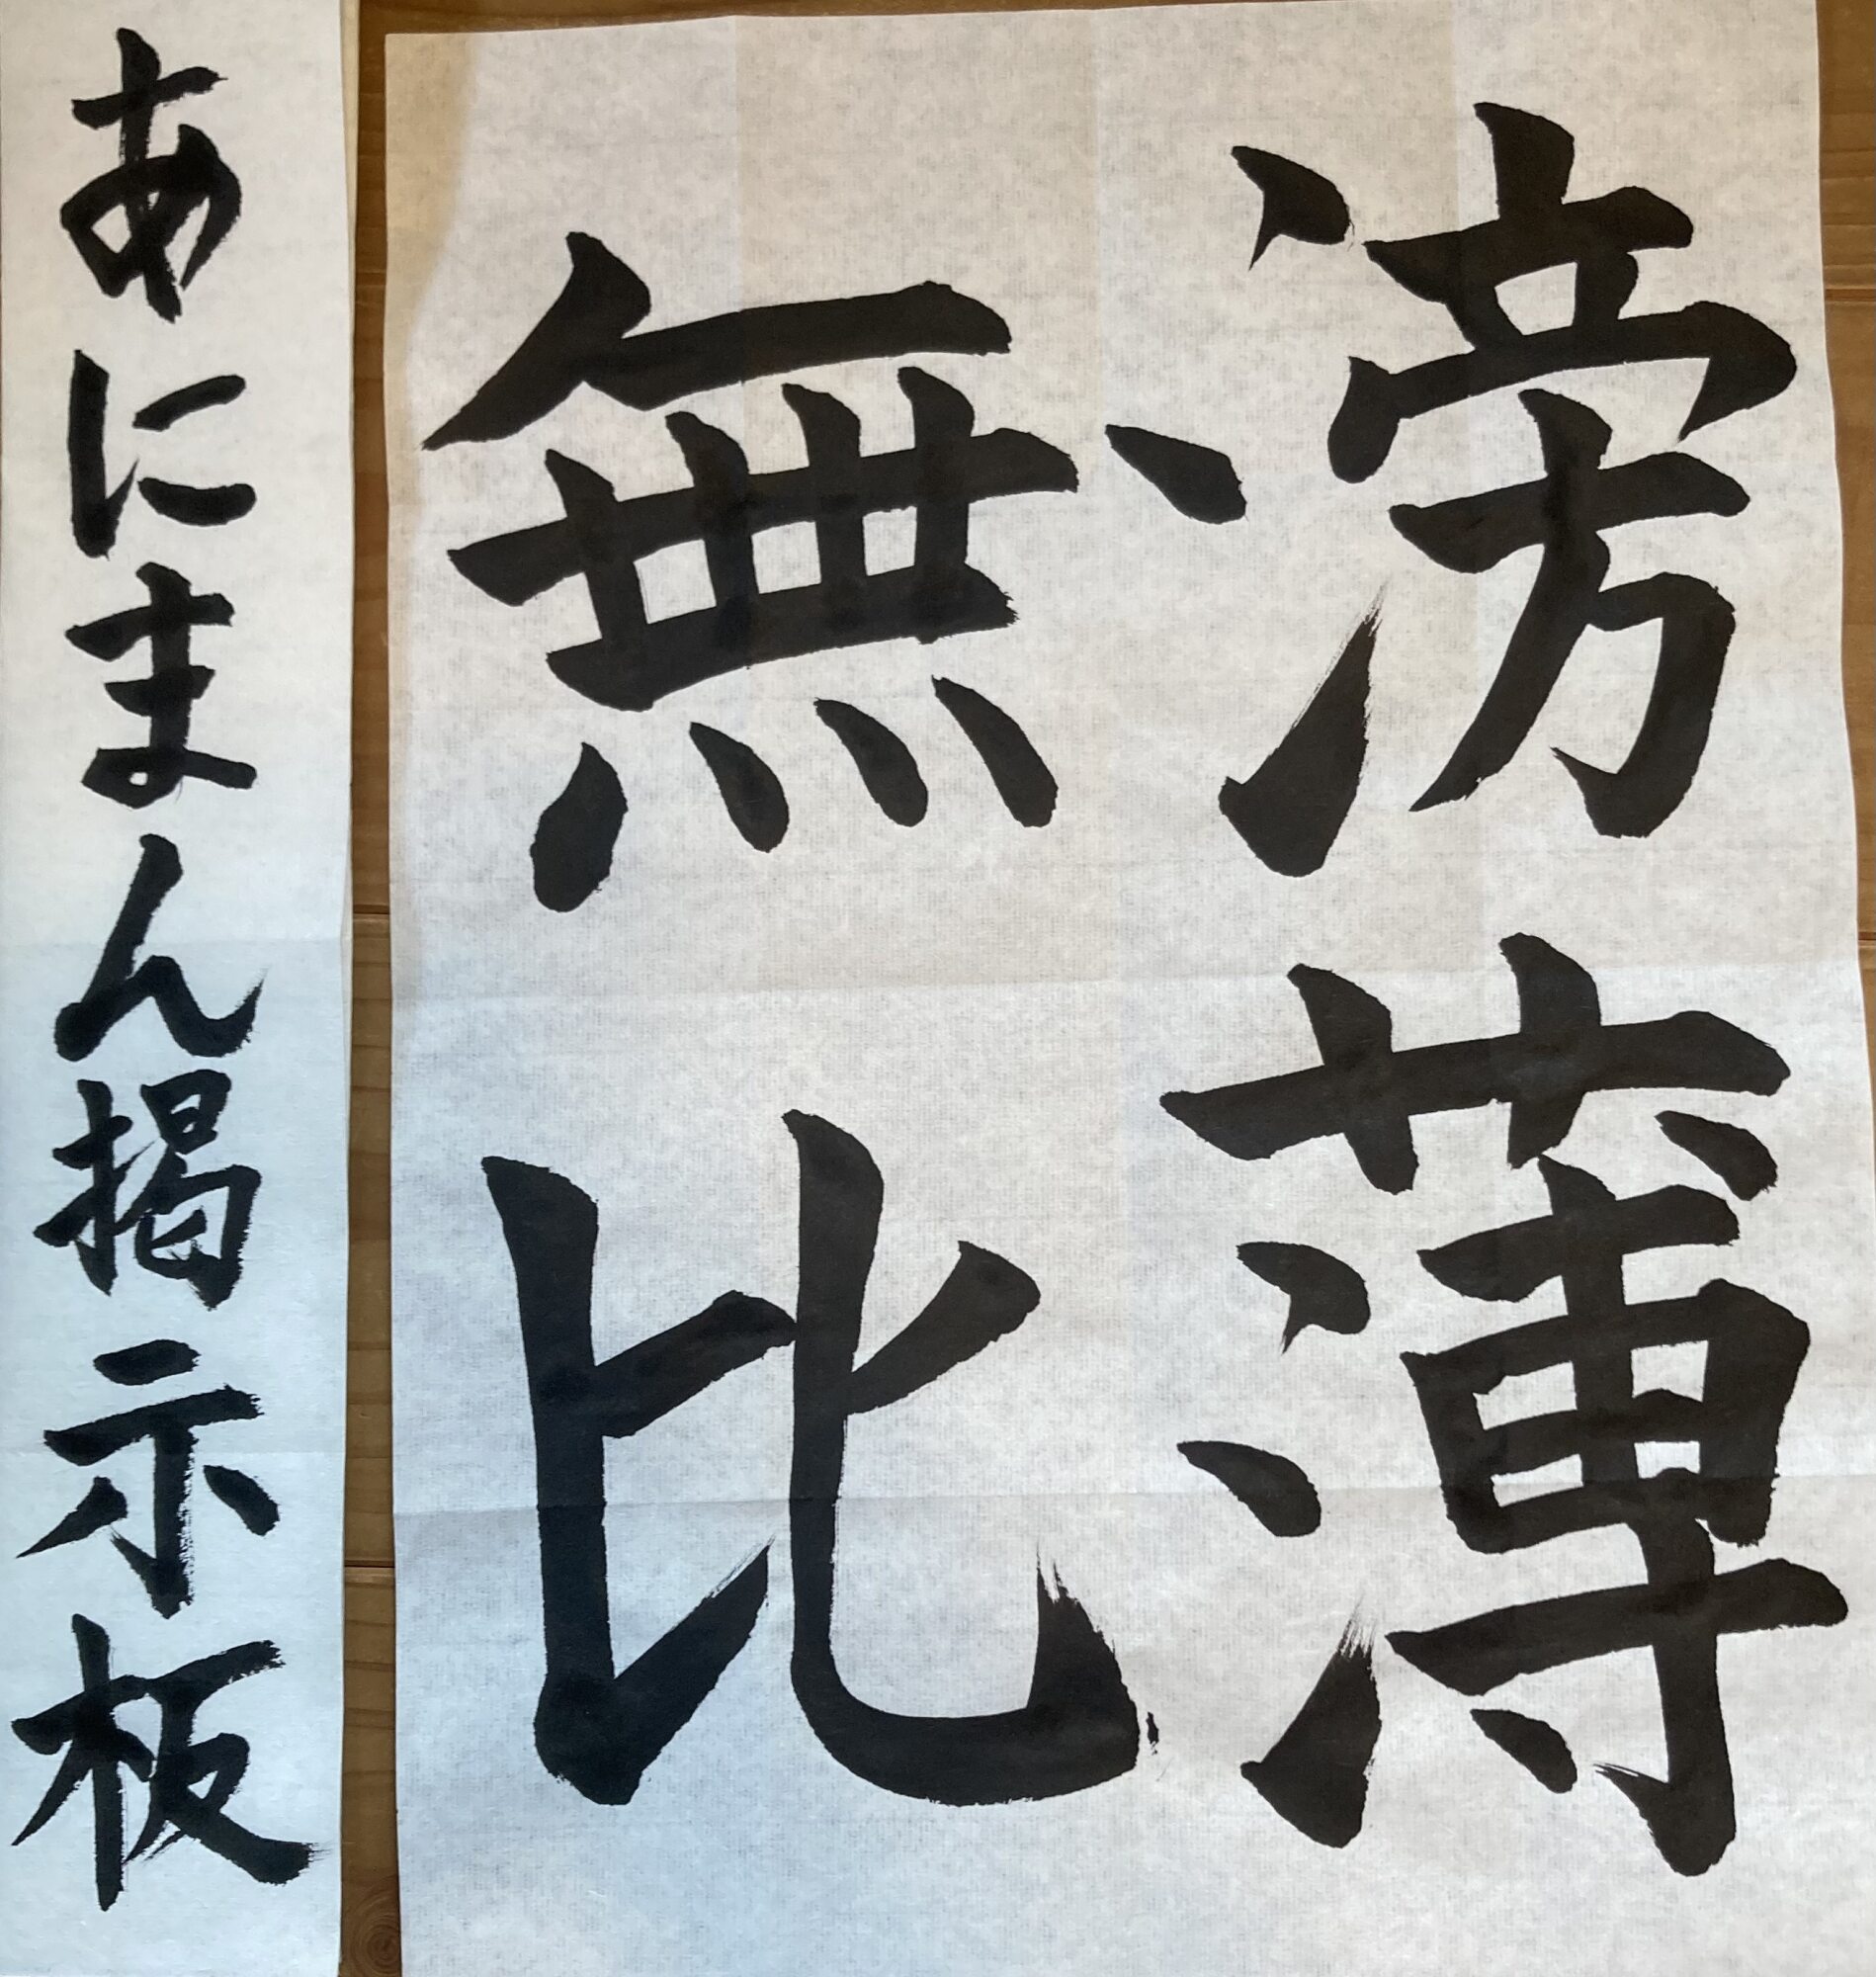 滂薄
無比
あにまん掲示板